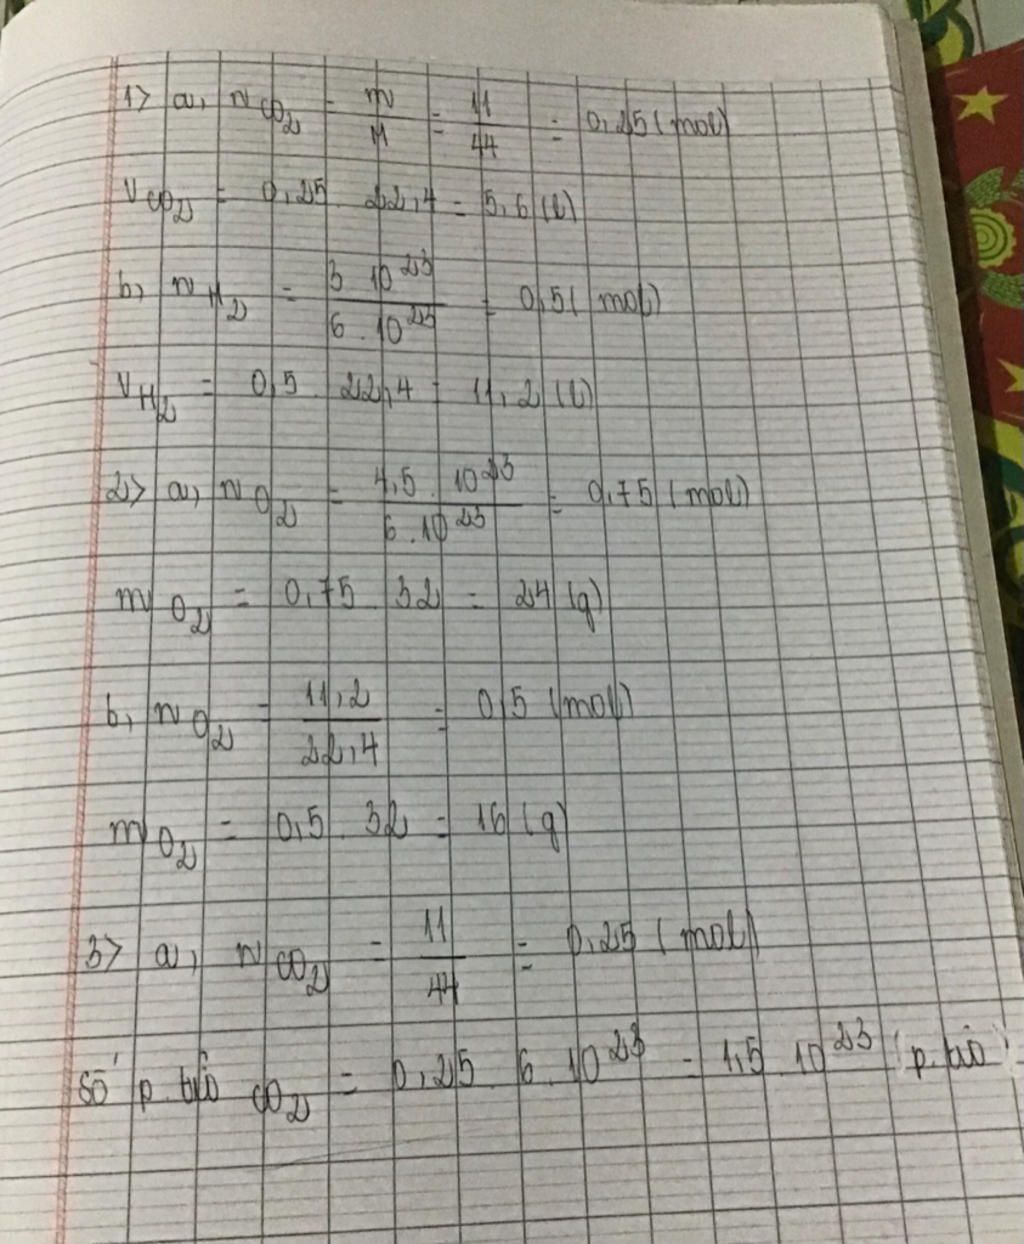 1> a, nCO2 = m/M = 11/44 = 0,25 (mol)
VCO2 = 0,25 . 22,4 = 5,6 (l)
b, nH2 = 3 . 10^23 / 6 . 10^23 = 0,5 (mol)
VH2 = 0,5 . 22,4 = 11,2 (l)
2> a, nO2 = 4,5 . 10^23 / 6 . 10^23 = 0,75 (mol)
mO2 = 0,75 . 32 = 24 (g)
b, nO2 = 11,2 / 22,4 = 0,5 (mol)
mO2 = 0,5 . 32 = 16 (g)
3> a, nCO2 = 11/44 = 0,25 (mol)
Số p. tử CO2 = 0,25 . 6 . 10^23 = 1,5 . 10^23 (p. tử)